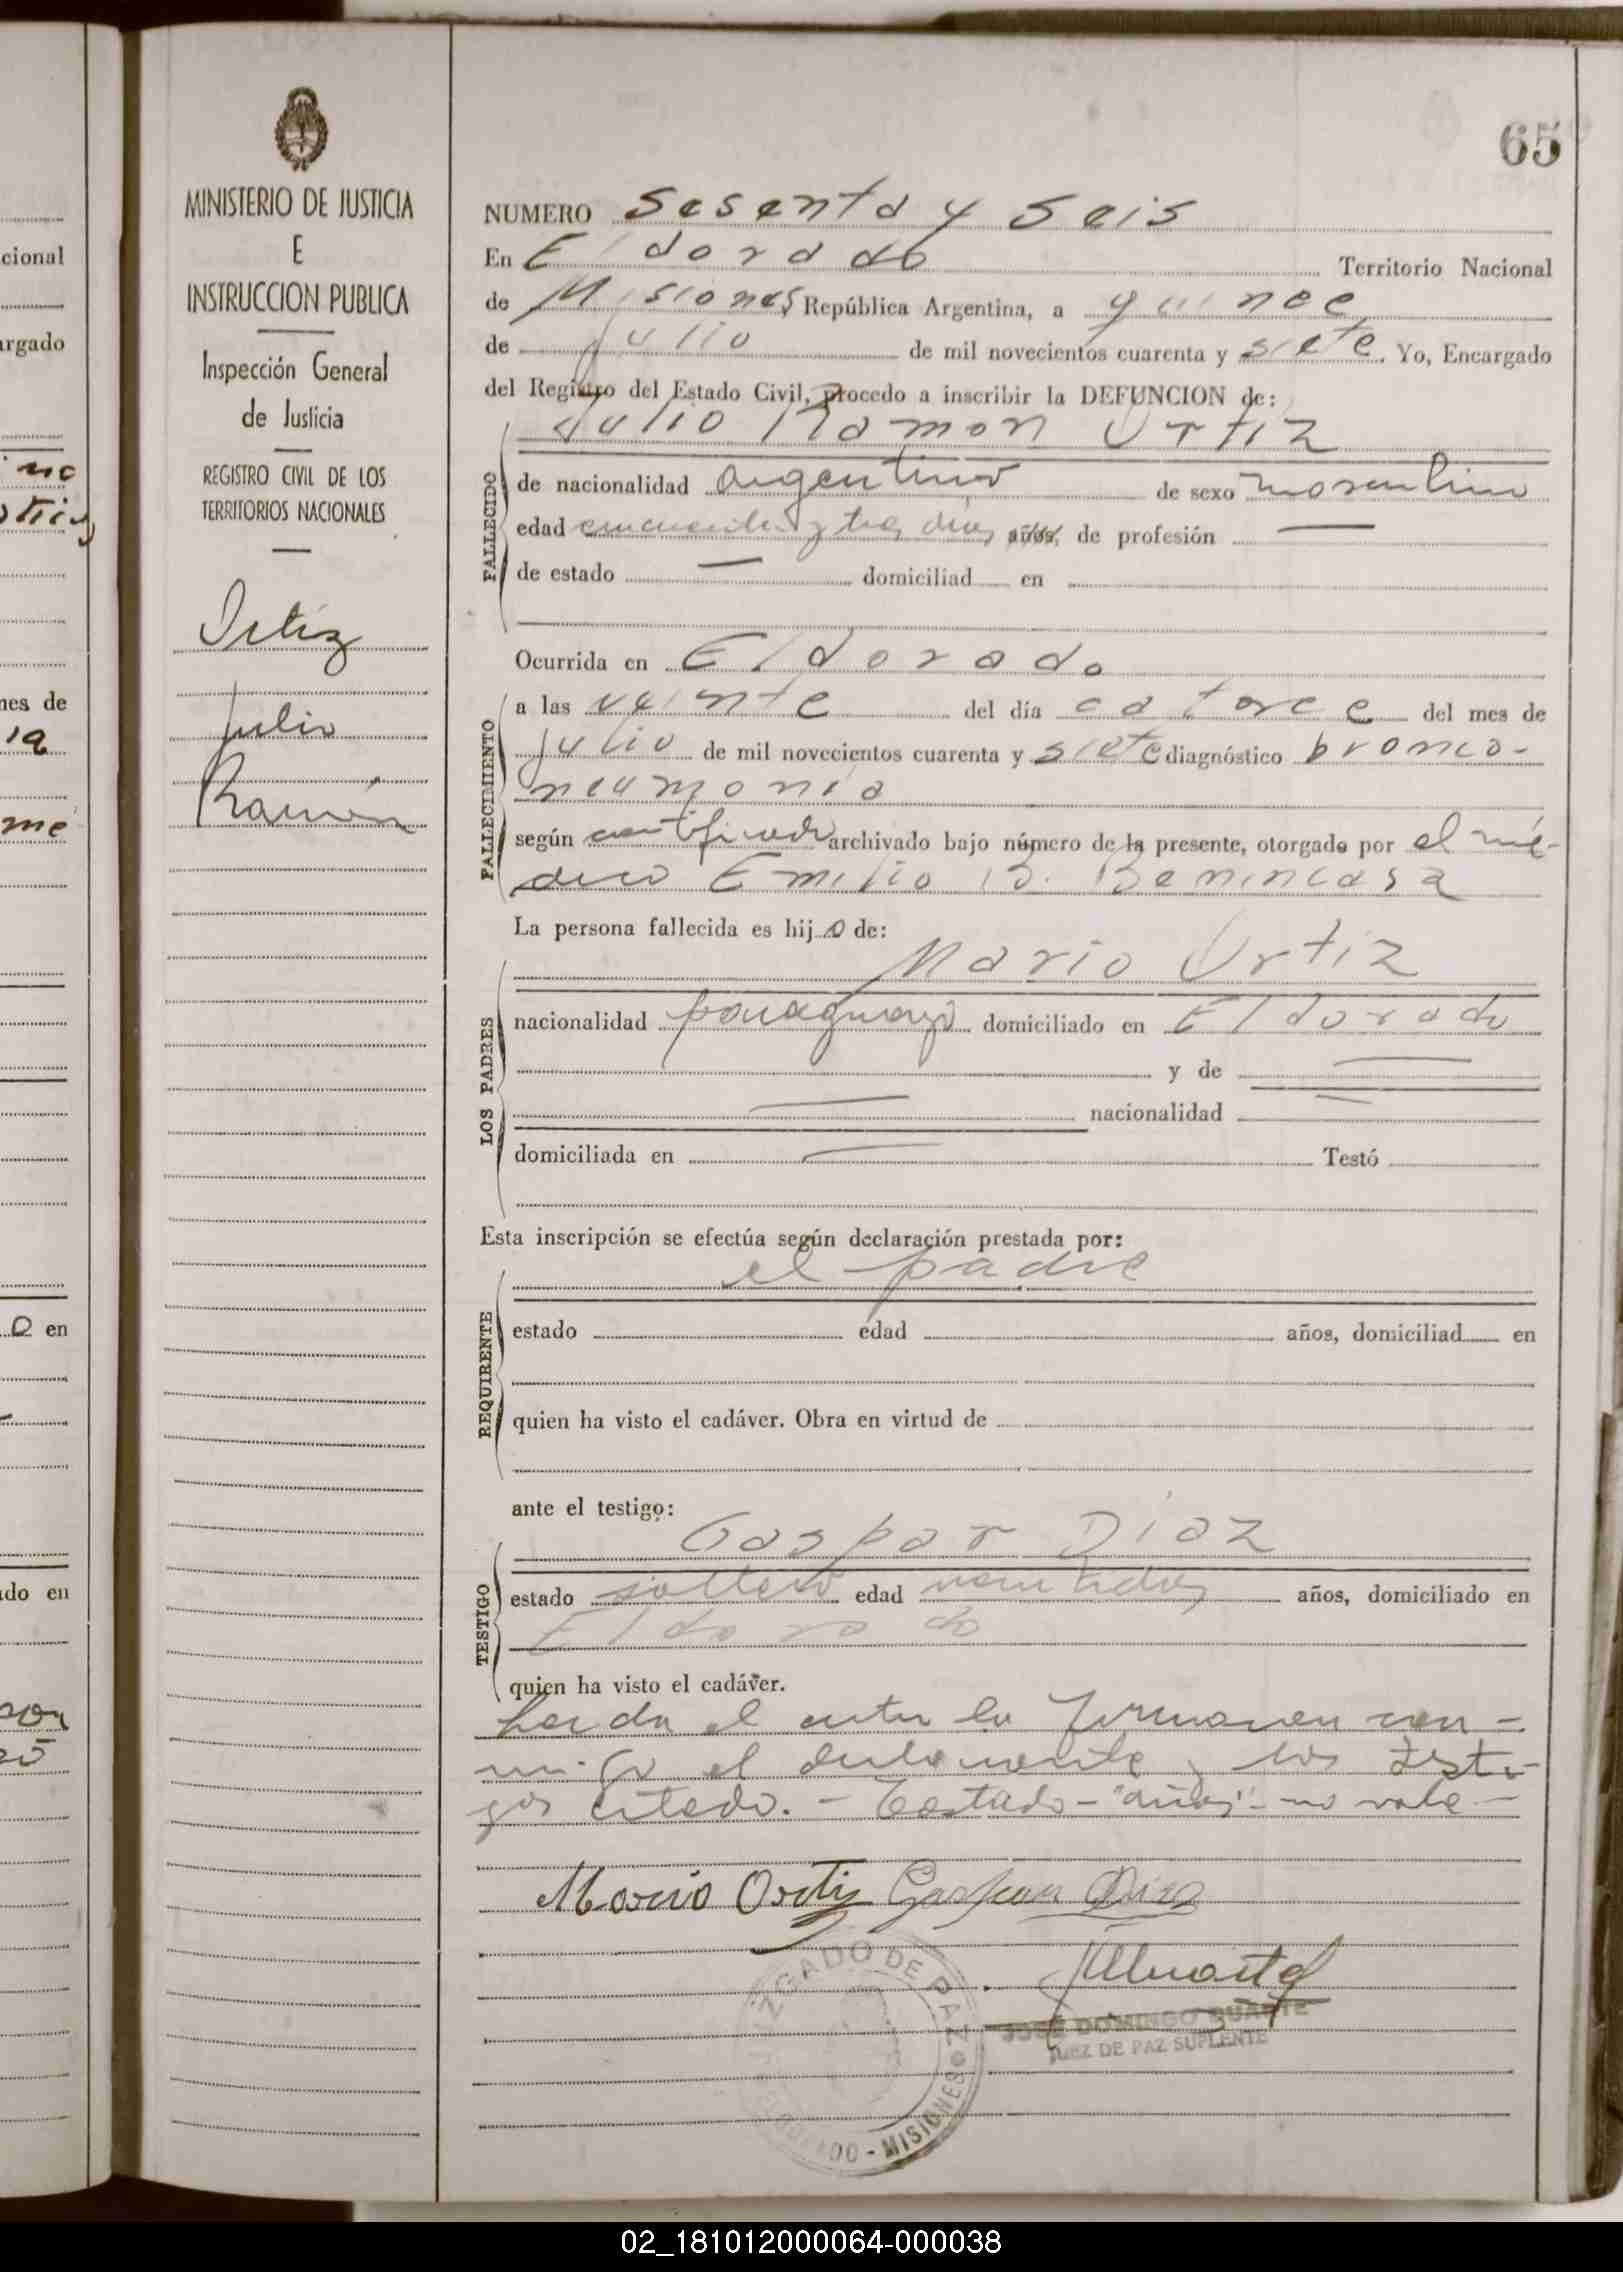 65
MINISTERIO DE JUSTICIA
E
INSTRUCCION PUBLICA
Inspección General
de Justicia
REGISTRO CIVIL DE LOS
TERRITORIOS NACIONALES
Ortiz
Julio
Ramón
NUMERO Sesenta y Seis
En Eldorado Territorio Nacional
de Misiones República Argentina, a quince
de julio de mil novecientos cuarenta y siete. Yo, Encargado
del Registro del Estado Civil, procedo a inscribir la DEFUNCION de:
Julio Ramon Ortiz
FALLECIDO
de nacionalidad argentino de sexo masculino
edad cincuenta y tres dias años, de profesión —
de estado — domiciliad en
Ocurrida en Eldorado
FALLECIMIENTO
a las veinte del día catorce del mes de
julio de mil novecientos cuarenta y siete diagnóstico bronco-
neumonia
según certificado archivado bajo número de la presente, otorgado por el mé-
dico Emilio B. Benincasa
La persona fallecida es hijo de:
Mario Ortiz
LOS PADRES
nacionalidad paraguayo domiciliado en Eldorado
y de —
— nacionalidad —
domiciliada en — Testó
Esta inscripción se efectúa según declaración prestada por:
el padre
REQUIRENTE
estado edad años, domiciliad en
quien ha visto el cadáver. Obra en virtud de
ante el testigo:
Gaspar Diaz
TESTIGO
estado soltero edad veintidos años, domiciliado en
Eldorado
quien ha visto el cadáver.
Leida el acta la firmaron con-
migo el declarante y los testi-
gos citado. - Testado - "años" - no vale -
Mario Ortiz Gaspar Diaz
JDuarte
JOSÉ DOMINGO DUARTE
JUEZ DE PAZ SUPLENTE
JUZGADO DE PAZ
ELDORADO - MISIONES
cional
argado
nes de
me
o en
do en
02_181012000064-000038